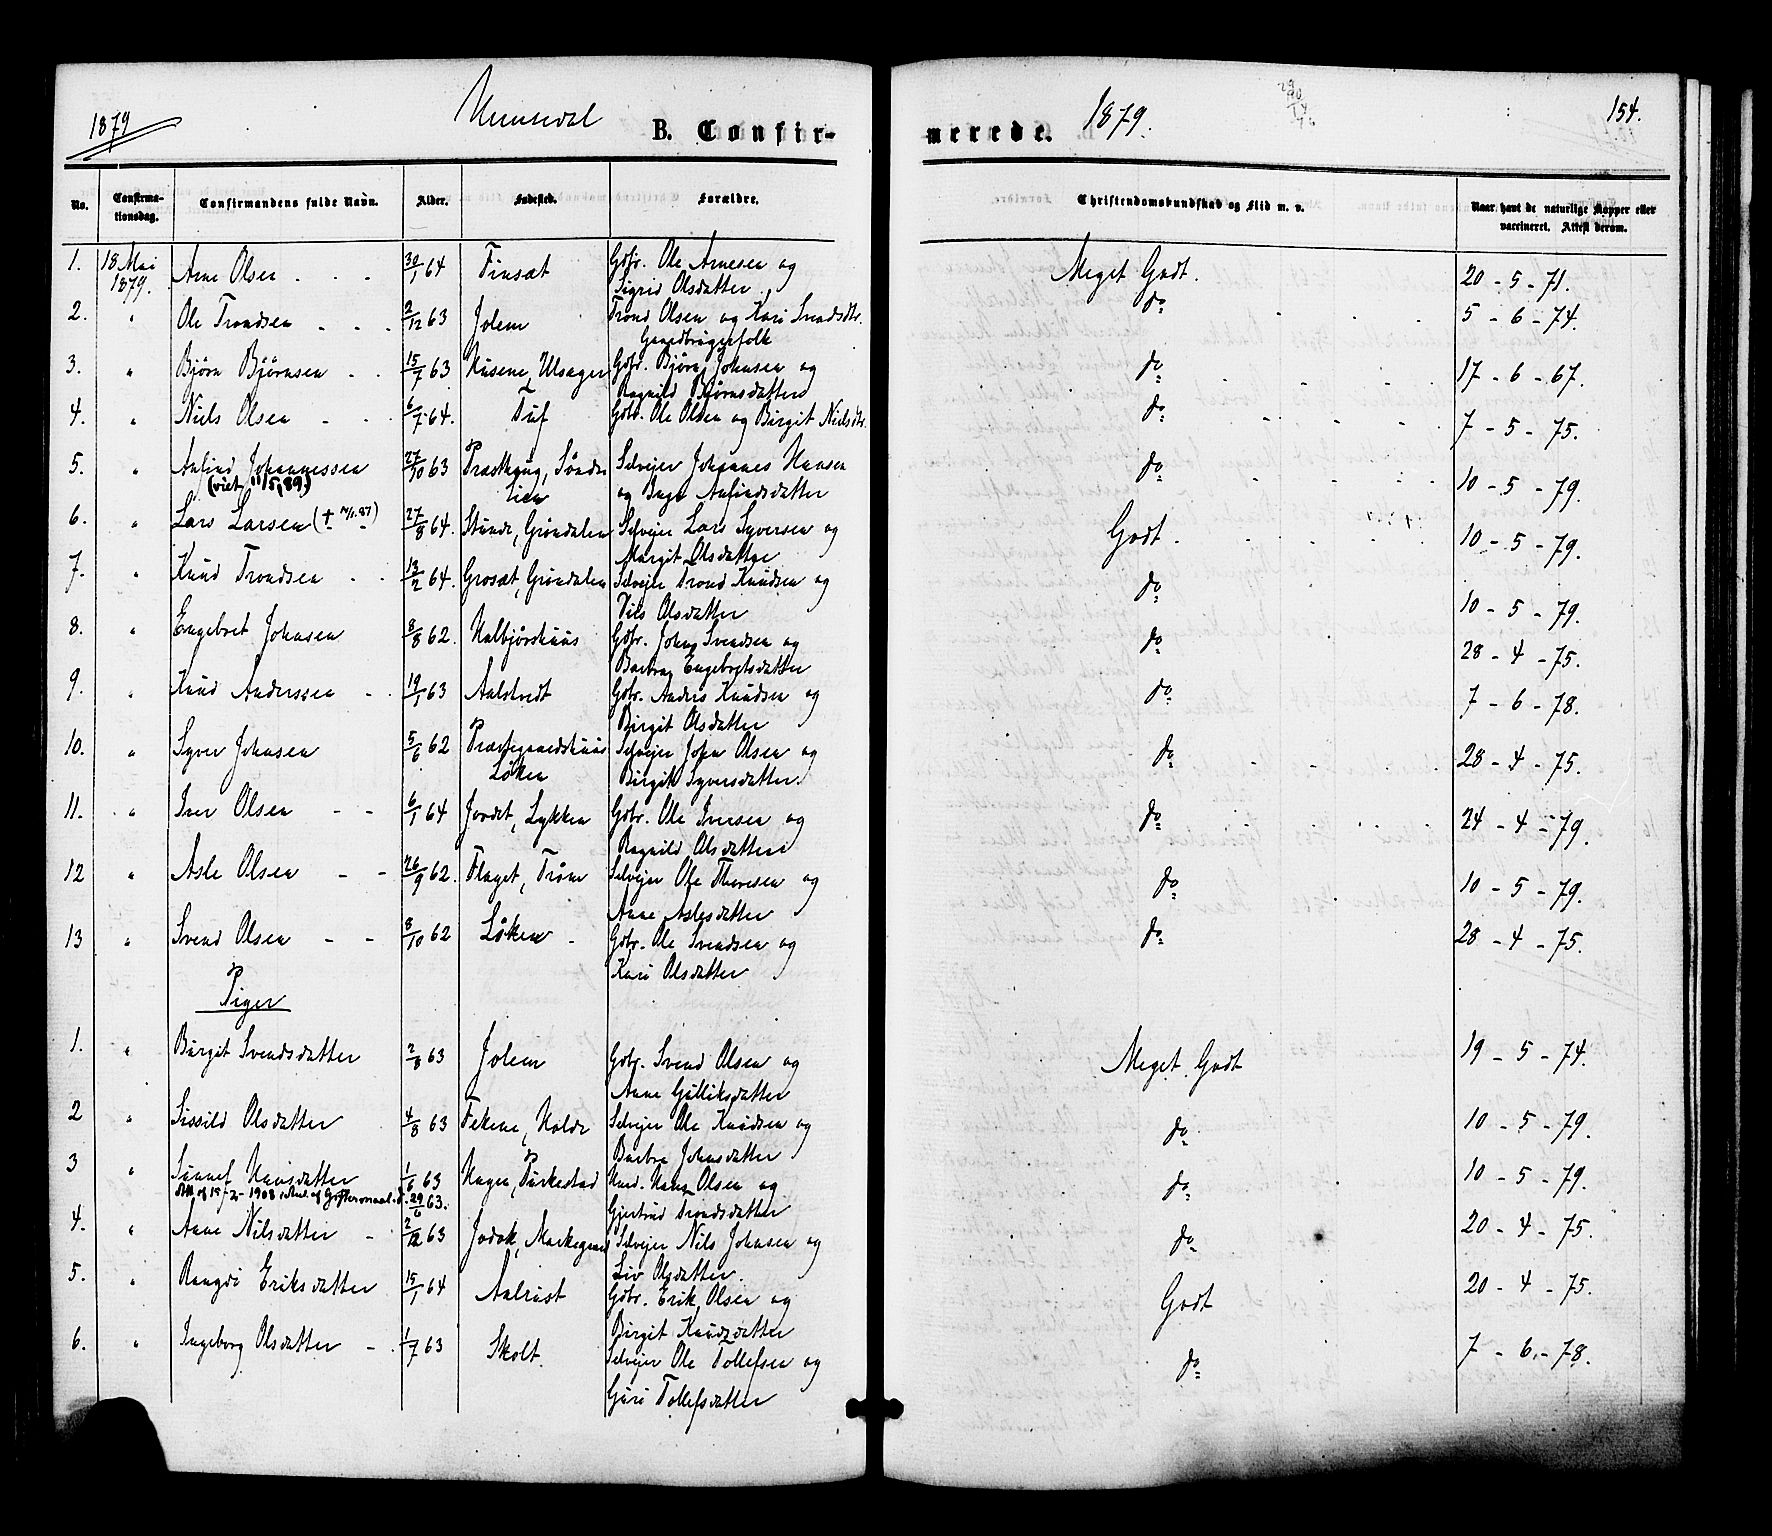 1879
Hemsedal
B. Confir-
No. Confirma-tionsdag. Confirmandens fulde Navn. Alder. Fødested. Forældre.
1. 18 Mai 1879. Arne Olsen - - - 30/1 64 Finsæt Gbr. Ole Arnesen og
Sigrid Olsdatter.
2. " Ole Trondsen - - - 2/12 63 Jolem Trond Olsen og Kari Svendsdtr.
Gaardbrugerfolk
3. " Bjørn Bjørnsen - - 15/7 63 Husene, Ulsager Gbr. Bjørn Johnsen og
Ragnild Bjørnsdatter
4. " Niels Olsen - - 6/7 64. Tuf Gbr. Ole Olsen og Birgit Nielsdtr.
5. " Anfind Johannessen 27/10 63 Søndre Selvejer Johannes Hansen
(viet 11/5 89) Lien og Inge Anfindsdatter
6. " Lars Larsen († 87) 27/8 64. Grøndalen Selvejer Lars Syversen og
Margit Olsdatter
7. " Knud Trondsen - - 13/2 64. Grosæt, Grøndalen Selvejer Trond Knudsen og
Olsdatter
8. " Engebret Johnsen 8/8 62. Halbjørshuus Gbr. John Svendsen og
Barbra Engebretsdatter
9. " Knud Anderssen - - 19/1 63 Aalstvedt Gbr. Anders Knudsen og
Birgit Olsdatter
10. " Syver Johnsen 5/6 62 Præstegaardshuus Selvejer John Olsen og
Løken Birgit Syversdatter.
11. " Iver Olsen - - 6/1 64 Jordet, Lykken Gbr. Ole Iversen og
Ragnild Olsdatter
12 " Asle Olsen - - 26/9 62. Flaget, Trøim Selvejer Ole Thoresen og
Anne Aslesdatter
13 " Svend Olsen - - 8/10 62 Løken - Gbr. Ole Svendsen og
Kari Olsdatter
Piger
1. " Birgit Svendsdatter 2/8 63 Jolem Gbr. Svend Olsen og
Anne Gulliksdatter
2 " Sissild Olsdatter 4/8 63 Fekene, Holde Selvejer Ole Knudsen og
Barbra Johnsdatter
3 " Sunnef Hansdatter 1/6 63 Hagen, Hans Olsen og
29/6 63. Gjertrud Trondsdatter
4. " Anne Nilsdatter - 2/12 63 Markegaard Selvejer Nils Johnsen og
Liv Olsdatter.
5. " Rangdi Eriksdatter 15/1 64 Aalrust Gbr. Erik Olsen og
Birgit Knudsdatter
6. " Ingeborg Olsdatter - . 1/7 63 Skolt. Selvejer Ole Tollefsen og
Guri Tollefsdatter
merede. 1879. 154.
Christendomskundskab og Flid m. v. Naar havt de naturlige Kopper eller vaccineret. Attest derom.
Meget Godt. 20 - 5 - 71.
do 5 - 6 - 74.
do 17 - 6 - 67.
do 7 - 5 - 75.
do 10 - 5 - 79.
Godt. 10 - 5 - 79.
do 10 - 5 - 79.
do 28 - 4 - 75.
do 7 - 6 - 78.
do 28 - 4 - 75.
do 24 - 4 - 79.
do 10 - 5 - 79.
do 28 - 4 - 75.
Meget Godt 19 - 5 - 74.
do 10 - 5 - 79.
do 10 - 5 - 79.
do 20 - 4 - 75.
Godt 20 - 4 - 75.
do 7 - 6 - 78.